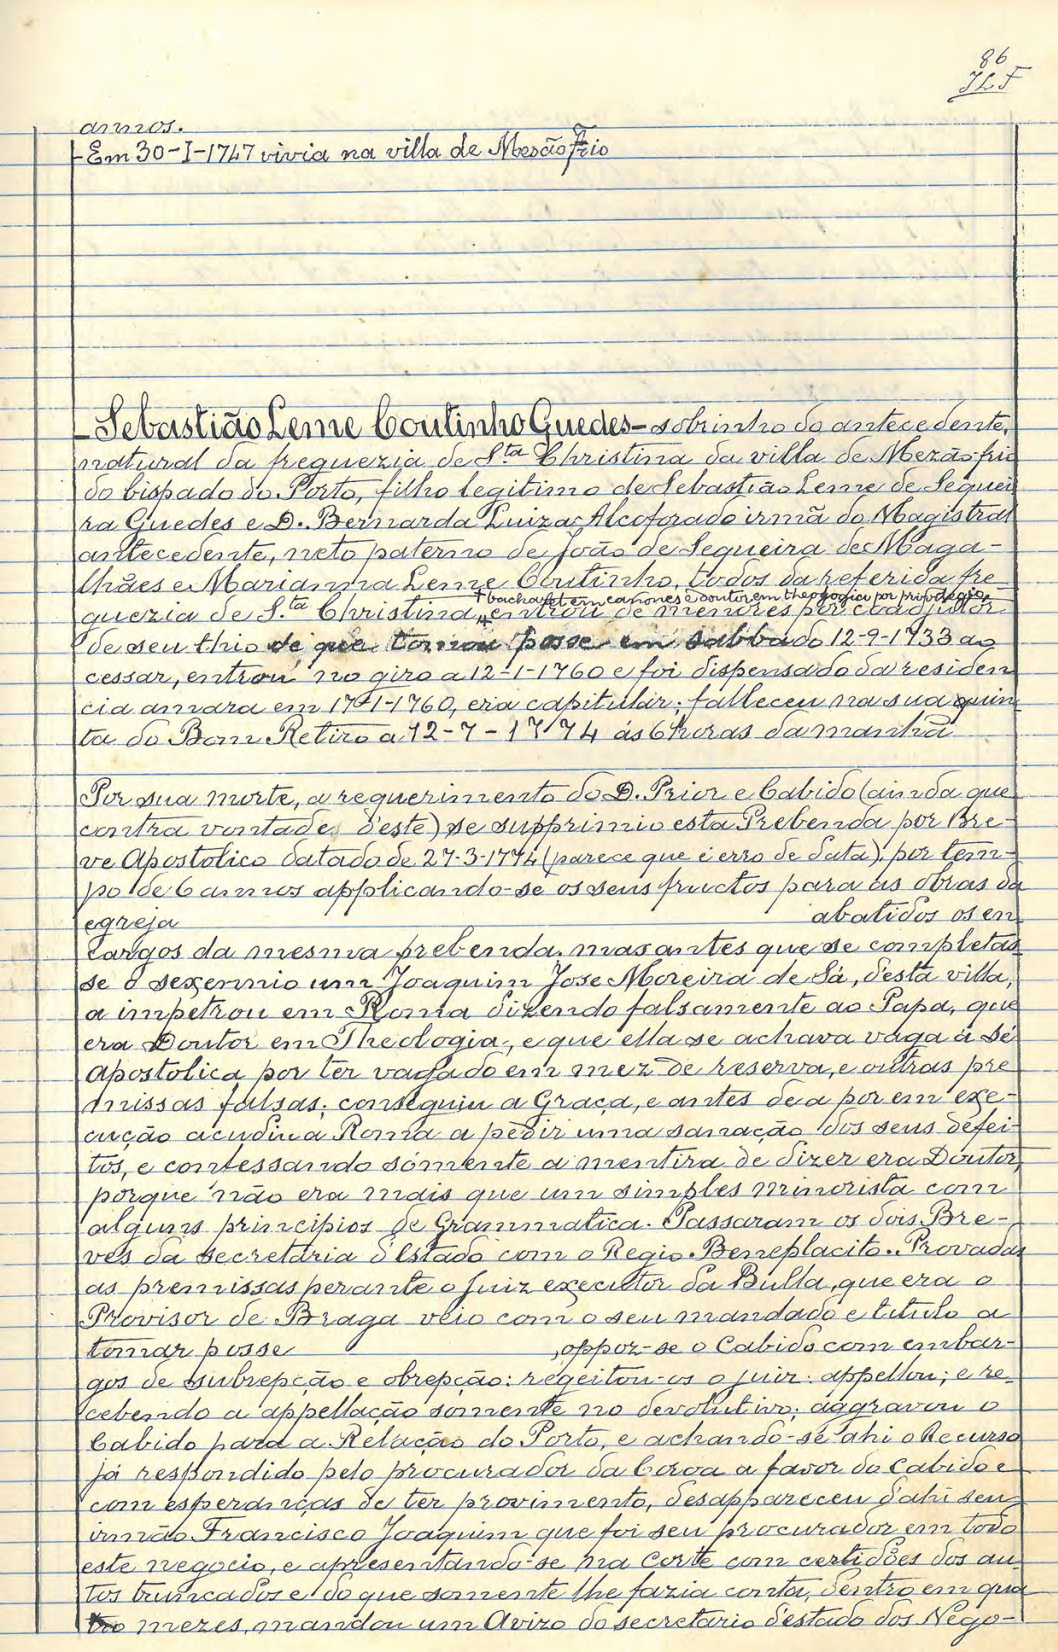 86
JLF
annos.
- Em 30-I-1747 vivia na villa de Mesão Frio
- Sebastião Leme Coutinho Guedes - sobrinho do antecedente,
natural da freguezia de Sta Christina da villa de Mezão-frio
do bispado do Porto, filho legitimo de Sebastião Leme de Sequei
ra Guedes e D. Bernarda Luiza Alcoforado irmã do Magistral
antecedente, neto paterno de João de Sequeira de Maga-
lhães e Marianna Leme Coutinho, todos da referida fre
+ bacharel em canones e doutor em theologia por privilegio,
guezia de Sta Christina, + entrou de menores por coadjutor
de seu thio de que tomou posse em sabbado 12-9-1733 ao
cessar, entrou no giro a 12-1-1760 e foi dispensado da residen
cia amara em 17-1-1760, era capitular; falleceu na sua quin
ta do Bom Retiro a 12-7-1774 ás 6 horas da manhã
Por sua morte, a requerimento do D. Prior e Cabido (ainda que
contra vontade deste) se supprimio esta Prebenda por Bre-
ve Apostolico datado de 27-3-1774 (parece que é erro de data), por tem-
po de 6 annos applicando-se os seus fructos para as obras da
egreja abatidos os en
cargos da mesma prebenda, mas antes que se completas
se o sexennio um Joaquim Jose Moreira de Sá, desta villa,
a impetrou em Roma dizendo falsamente ao Papa, que
era Doutor em Theologia, e que ella se achava vaga á Sé
Apostolica por ter vagado em mez de reserva, e outras pre
missas falsas; conseguiu a Graça, e antes de a por em exe-
cução acudiu a Roma a pedir uma sanação dos seus defei-
tos, e confessando sómente a mentira de dizer era Doutor,
porque não era mais que um simples minorista com
alguns principios de Grammatica. Passaram os dois Bre-
ves da secretaria d'Estado com o Regio Beneplacito. Provadas
as premissas perante o Juiz executor da Bulla, que era o
Provisor de Braga veio com o seu mandado e titulo a
tomar posse , oppoz-se o Cabido com embar-
gos de subrepção e obrepção: regeitou-os o juiz: appellou; e re-
cebendo a appellação somente no devolutivo; aggravou o
Cabido para a Relação do Porto, e achando-se ahi o Recurso
já respondido pelo procurador da Coroa a favor do Cabido e
com esperanças de ter provimento, desappareceu d'ahi seu
irmão Francisco Joaquim que foi seu procurador em todo
este negocio, e apresentando-se na Corte com certidões dos au
tos truncados e do que somente lhe fazia conta, dentro em qua
tro mezes, mandou um Avizo do secretario d'estado dos Nego-